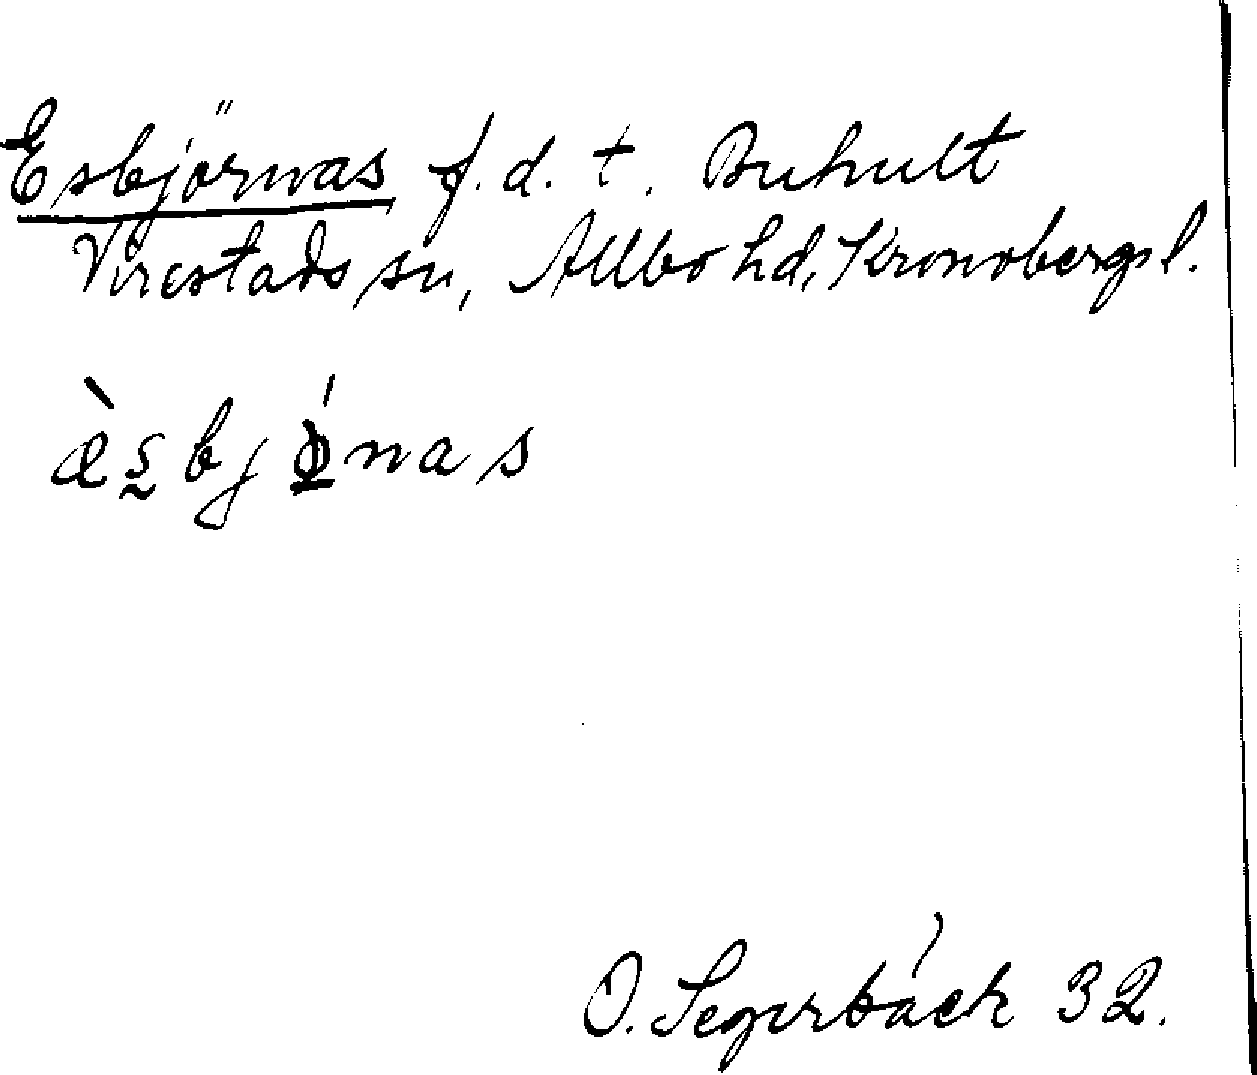 Esbjörnas f.d. t. Buhult
Virestads sn, Allbo hd, Kronobergs l.
æ̀s̰bjǿ̲nas
O. Segerbäck 32.